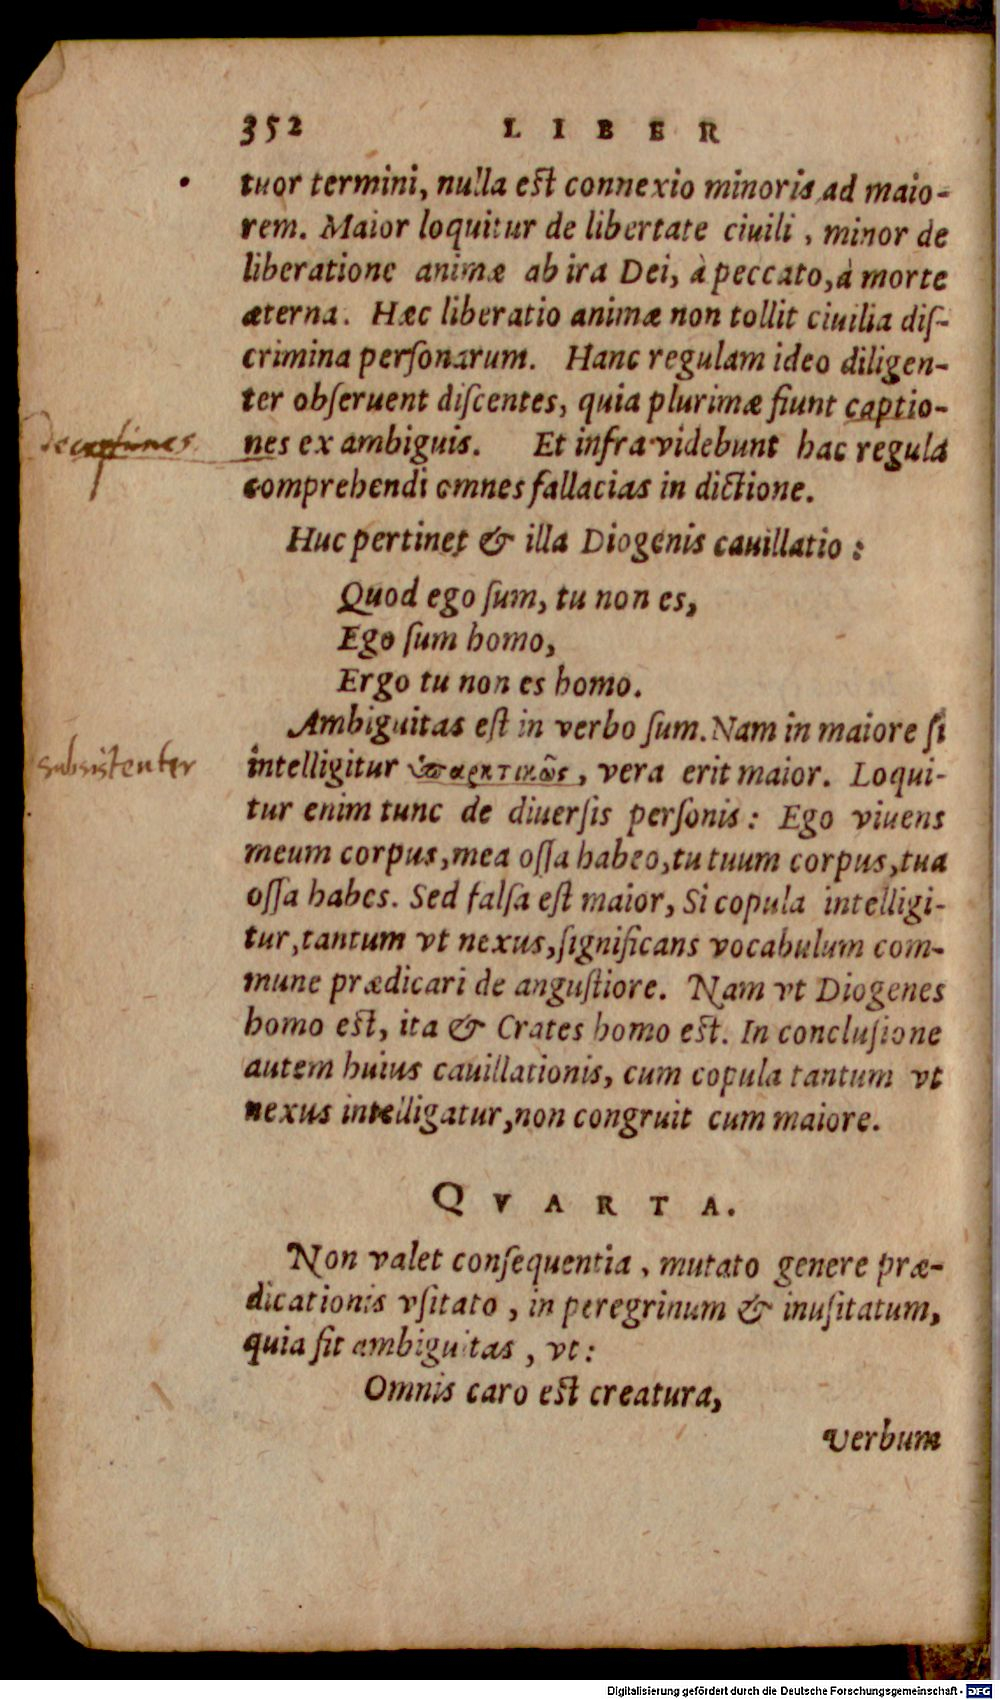 352 LIBER
tuor termini, nulla est connexio minoris ad maio-
rem. Maior loquitur de libertate ciuili, minor de
liberatione animæ ab ira Dei, à peccato, à morte
æterna. Hæc liberatio animæ non tollit ciuilia diſ-
crimina perſonarum. Hanc regulam ideo diligen-
ter obſeruent diſcentes, quia plurimæ fiunt captio-
deceptiones
nes ex ambiguis. Et infra videbunt hac regula
comprehendi omnes fallacias in dictione.
Huc pertinet & illa Diogenis cauillatio:
Quod ego ſum, tu non es,
Ego ſum homo,
Ergo tu non es homo.
Ambiguitas eſt in verbo ſum. Nam in maiore ſi
subsistenter
intelligitur ὑπαρκτικῶς, vera erit maior. Loqui-
tur enim tunc de diuerſis perſonis: Ego viuens
meum corpus, mea oſſa habeo, tu tuum corpus, tua
oſſa habes. Sed falſa eſt maior, Si copula intelligi-
tur, tantum vt nexus, ſignificans vocabulum com-
mune prædicari de anguſtiore. Nam vt Diogenes
homo eſt, ita & Crates homo eſt. In concluſione
autem huius cauillationis, cum copula tantum vt
nexus intelligatur, non congruit cum maiore.
QVARTA.
Non valet conſequentia, mutato genere præ-
dicationis vſitato, in peregrinum & inuſitatum,
quia fit ambiguitas, vt:
Omnis caro eſt creatura,
Verbum
Digitalisierung gefördert durch die Deutsche Forschungsgemeinschaft - DFG